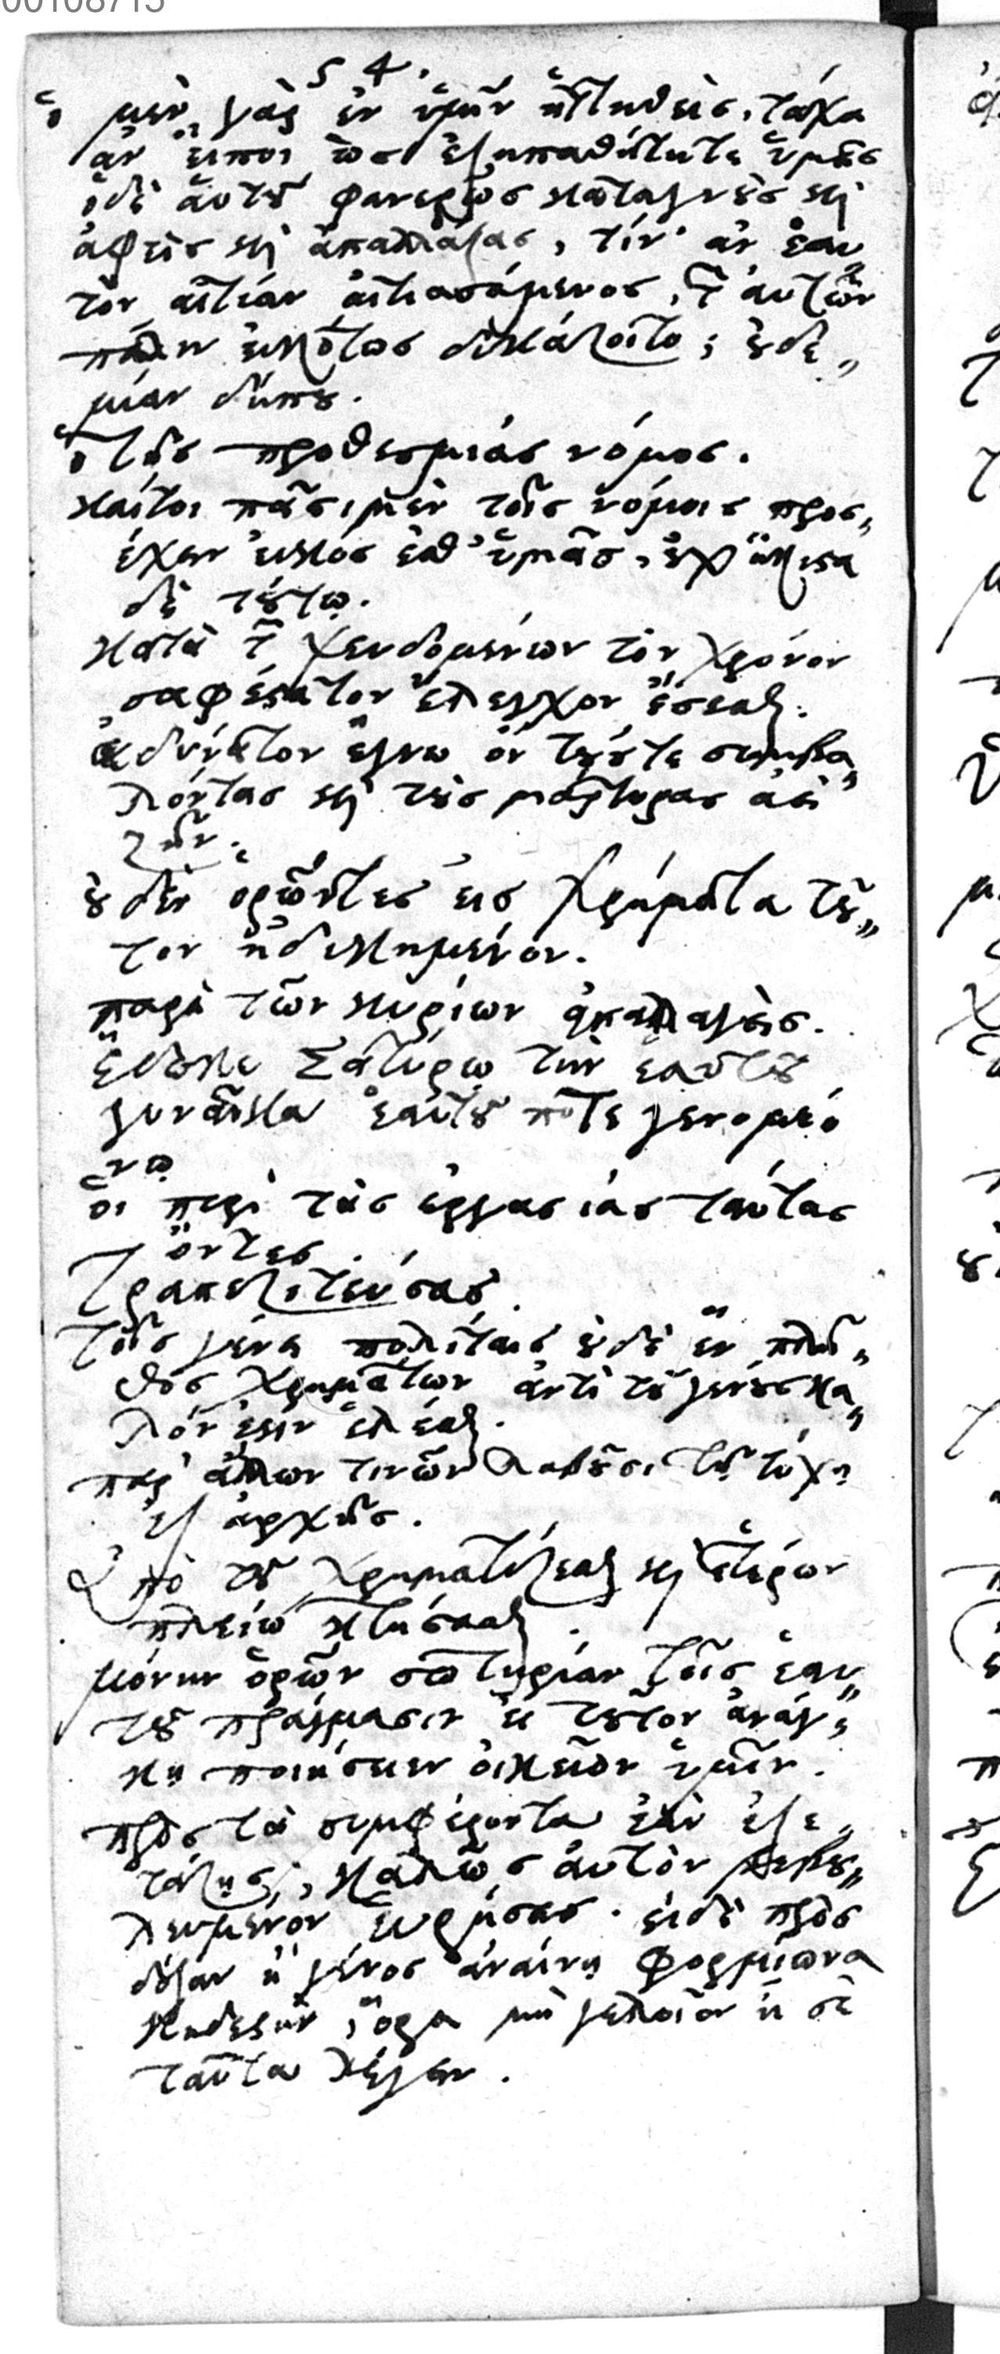 00108713
54.
ὁ μὲν γὰρ ἐν ὑμῖν ἡττηθεὶς, τάχα
ἂν εἴποι ὡς ἐξηπατήθητε ὑμεῖς
ὁ δὲ αὑτοῦ φανερῶς καταγνοὺς καὶ
ἀφεὶς καὶ ἀπαλλάξας, τίν' ἂν ἑαυ„
τὸν αἰτίαν αἰτιασάμενος, τῶν αὐτῶν
πάλιν εἰκότως δικάζοιτο; οὐδε„
μίαν δήπου.
ὁ τῆς προθεσμίας νόμος.
καίτοι πᾶσι μὲν τοῖς νόμοις προσ„
έχειν εἰκός ἐσθ' ὑμᾶς, οὐχ ἥκιστα
δὲ τούτῳ.
κατὰ τῶν ψευδομένων τὸν χρόνον
σαφέστατον ἔλεγχον ἔσεσθαι.
ἀδύνατον ἔγνω ὂν τούς τε συμβα„
λόντας καὶ τοὺς μάρτυρας ἀεὶ
ζῆν.
οὐδὲν ὁρῶντες εἰς χρήματα τοῦ„
τον ἠδικημένον.
παρὰ τῶν κυρίων ἀπαλλαγείς.
ἔδωκε Σατύρῳ τὴν ἑαυτοῦ
γυναῖκα ἑαυτοῦ ποτε γενομέ
νῳ
οἱ περὶ τὰς ἐργασίας ταύτας
ὄντες.
τραπεζιτεύσας.
τοῖς γένει πολίταις οὐδὲ ἓν πλῆ„
θος χρημάτων ἀντὶ τοῦ γένους κα„
λόν ἐστιν ἑλέσθαι.
παρ' ἄλλων τινῶν λαβοῦσι τῇ τύχῃ
ἐξ ἀρχῆς.
ἀπὸ τοῦ χρηματίζεσθαι καὶ ἑτέρων
πλείω κτήσασθαι.
μόνην ὁρῶν σωτηρίαν τοῖς ἑαυ„
τοῦ πράγμασιν εἰ τοῦτον ἀνάγ„
κῃ ποιήσειεν οἰκεῖον ὑμῖν.
πρὸς τὰ συμφέροντα ἐὰν ἐξε„
τάζῃς, καλῶς αὐτὸν βεβου„
λευμένον εὑρήσεις. εἰ δὲ πρὸς
δόξαν ἢ γένος ἀναίνῃ Φορμίωνα
κηδεστὴν, ὅρα μὴ γελοῖον ᾖ σὲ
ταῦτα λέγειν.